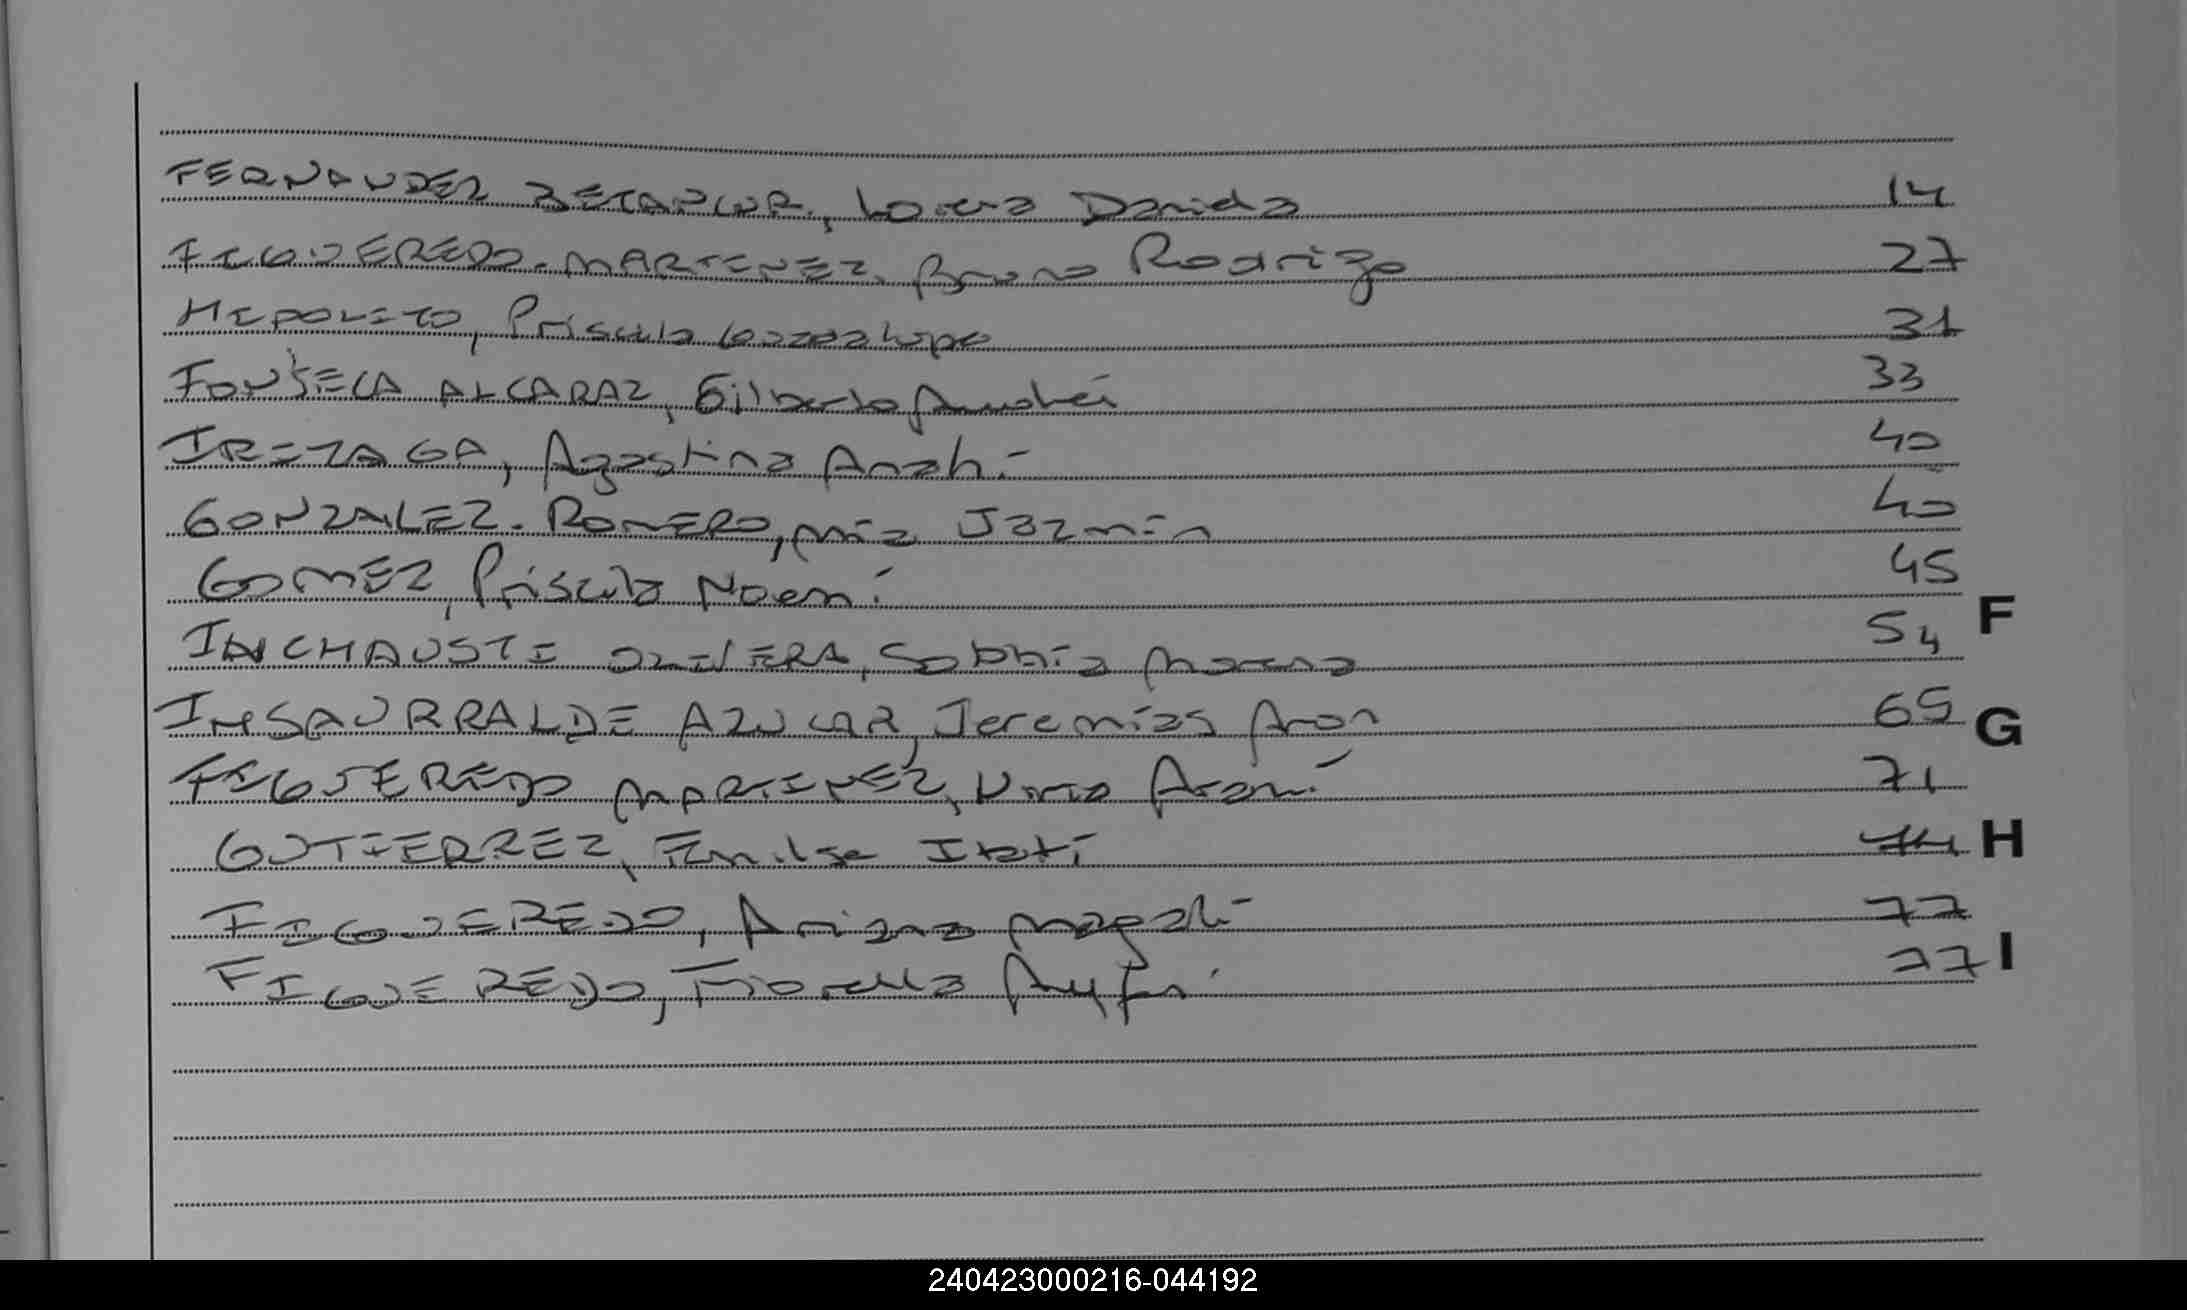 FERNANDEZ BETANCUR, Lorena Daniela 14
FIGUEREDO MARTINEZ, Bruno Rodrigo 27
HIPOLITO, Priscila Guadalupe 31
FONSECA ALCARAZ, Gilberto 33
IRIZAGA, Agostina Anahí 40
GONZALEZ ROMERO, Mía Jazmín 40
GOMEZ, Priscila Noemí 45
INCHAUSTI OLIVERA, Sophia Morena 54 F
INSAURRALDE AZUCAR, Jeremías Aron 65 G
FIGUEREDO MARTINEZ, Uma Aramí 71
GUTIERREZ, Emilse Itatí 74 H
FIGUEREDO, Ariana Magalí 77
FIGUEREDO, Fiorella 77 I
240423000216-044192